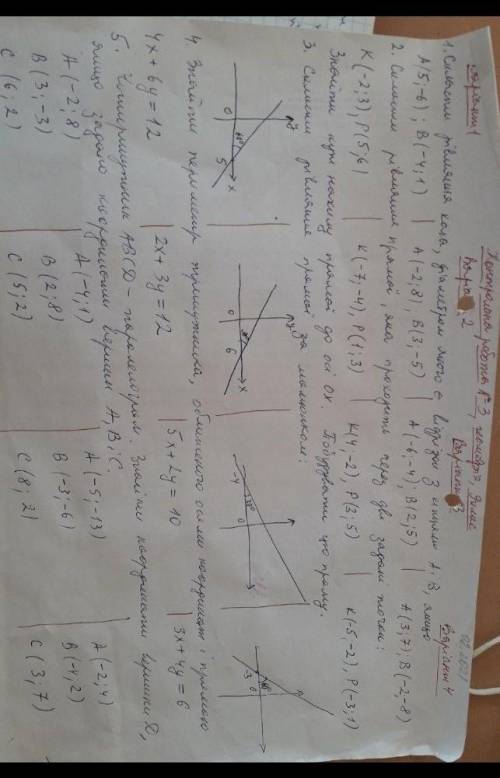 02.2021
Контрольна робота №3, геометр., 9 клас
Варіант 1 Варіант 2 Варіант 3 Варіант 4
1. Скласти рівняння кола, діаметром якого є відрізок з кінцями А і В, якщо
A(5;-6); B(-4;1) | A(-2;8), B(3;-5) | A(-6;-4); B(2;5) | A(3;7), B(-2;-8)
2. Скласти рівняння прямої, яка проходить через дві задані точки:
K(-2;3), P(5;6) | K(-7;-4), P(1;3) | K(4;-2), P(3;5) | K(-5;-2), P(-3;1)
Знайти кут нахилу прямої до осі ОХ. Побудувати цю пряму.
3. Скласти рівняння прямої за малюнком:
y 0 5 x
y 0 6 x
-4 0
-3 0
4. Знайти периметр трикутника, обмеженого осями координат і прямою
4x+6y=12 | 2x+3y=12 | 5x+2y=10 | 3x+4y=6
5. Чотирикутник ABCD – паралелограм. Знайти координати вершини D,
якщо задано координати вершин A, B, C.
A(-2;8) A(-4;1) A(-5;-13) A(-2;4)
B(3;-3) B(2;8) B(-3;-6) B(-4;2)
C(6;2) C(5;2) C(8;2) C(3;7)